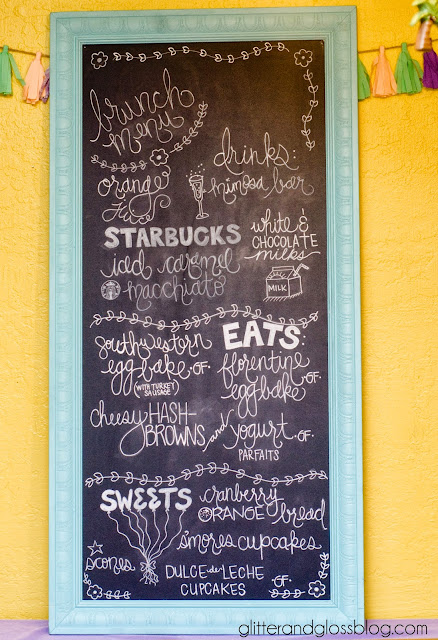 brunch
menu
drinks:
orange
juice
mimosa bar
STARBUCKS
iced caramel
macchiato
white &
CHOCOLATE
milks
MILK
EATS:
southwestern
egg bake GF
(WITH TURKEY
SAUSAGE)
florentine
GF
egg bake
cheesy HASH-
BROWNS and yogurt GF
PARFAITS
SWEETS
cranberry
ORANGE bread
s'mores cupcakes
scones
DULCE de LECHE
CUPCAKES GF
glitterandglossblog.com